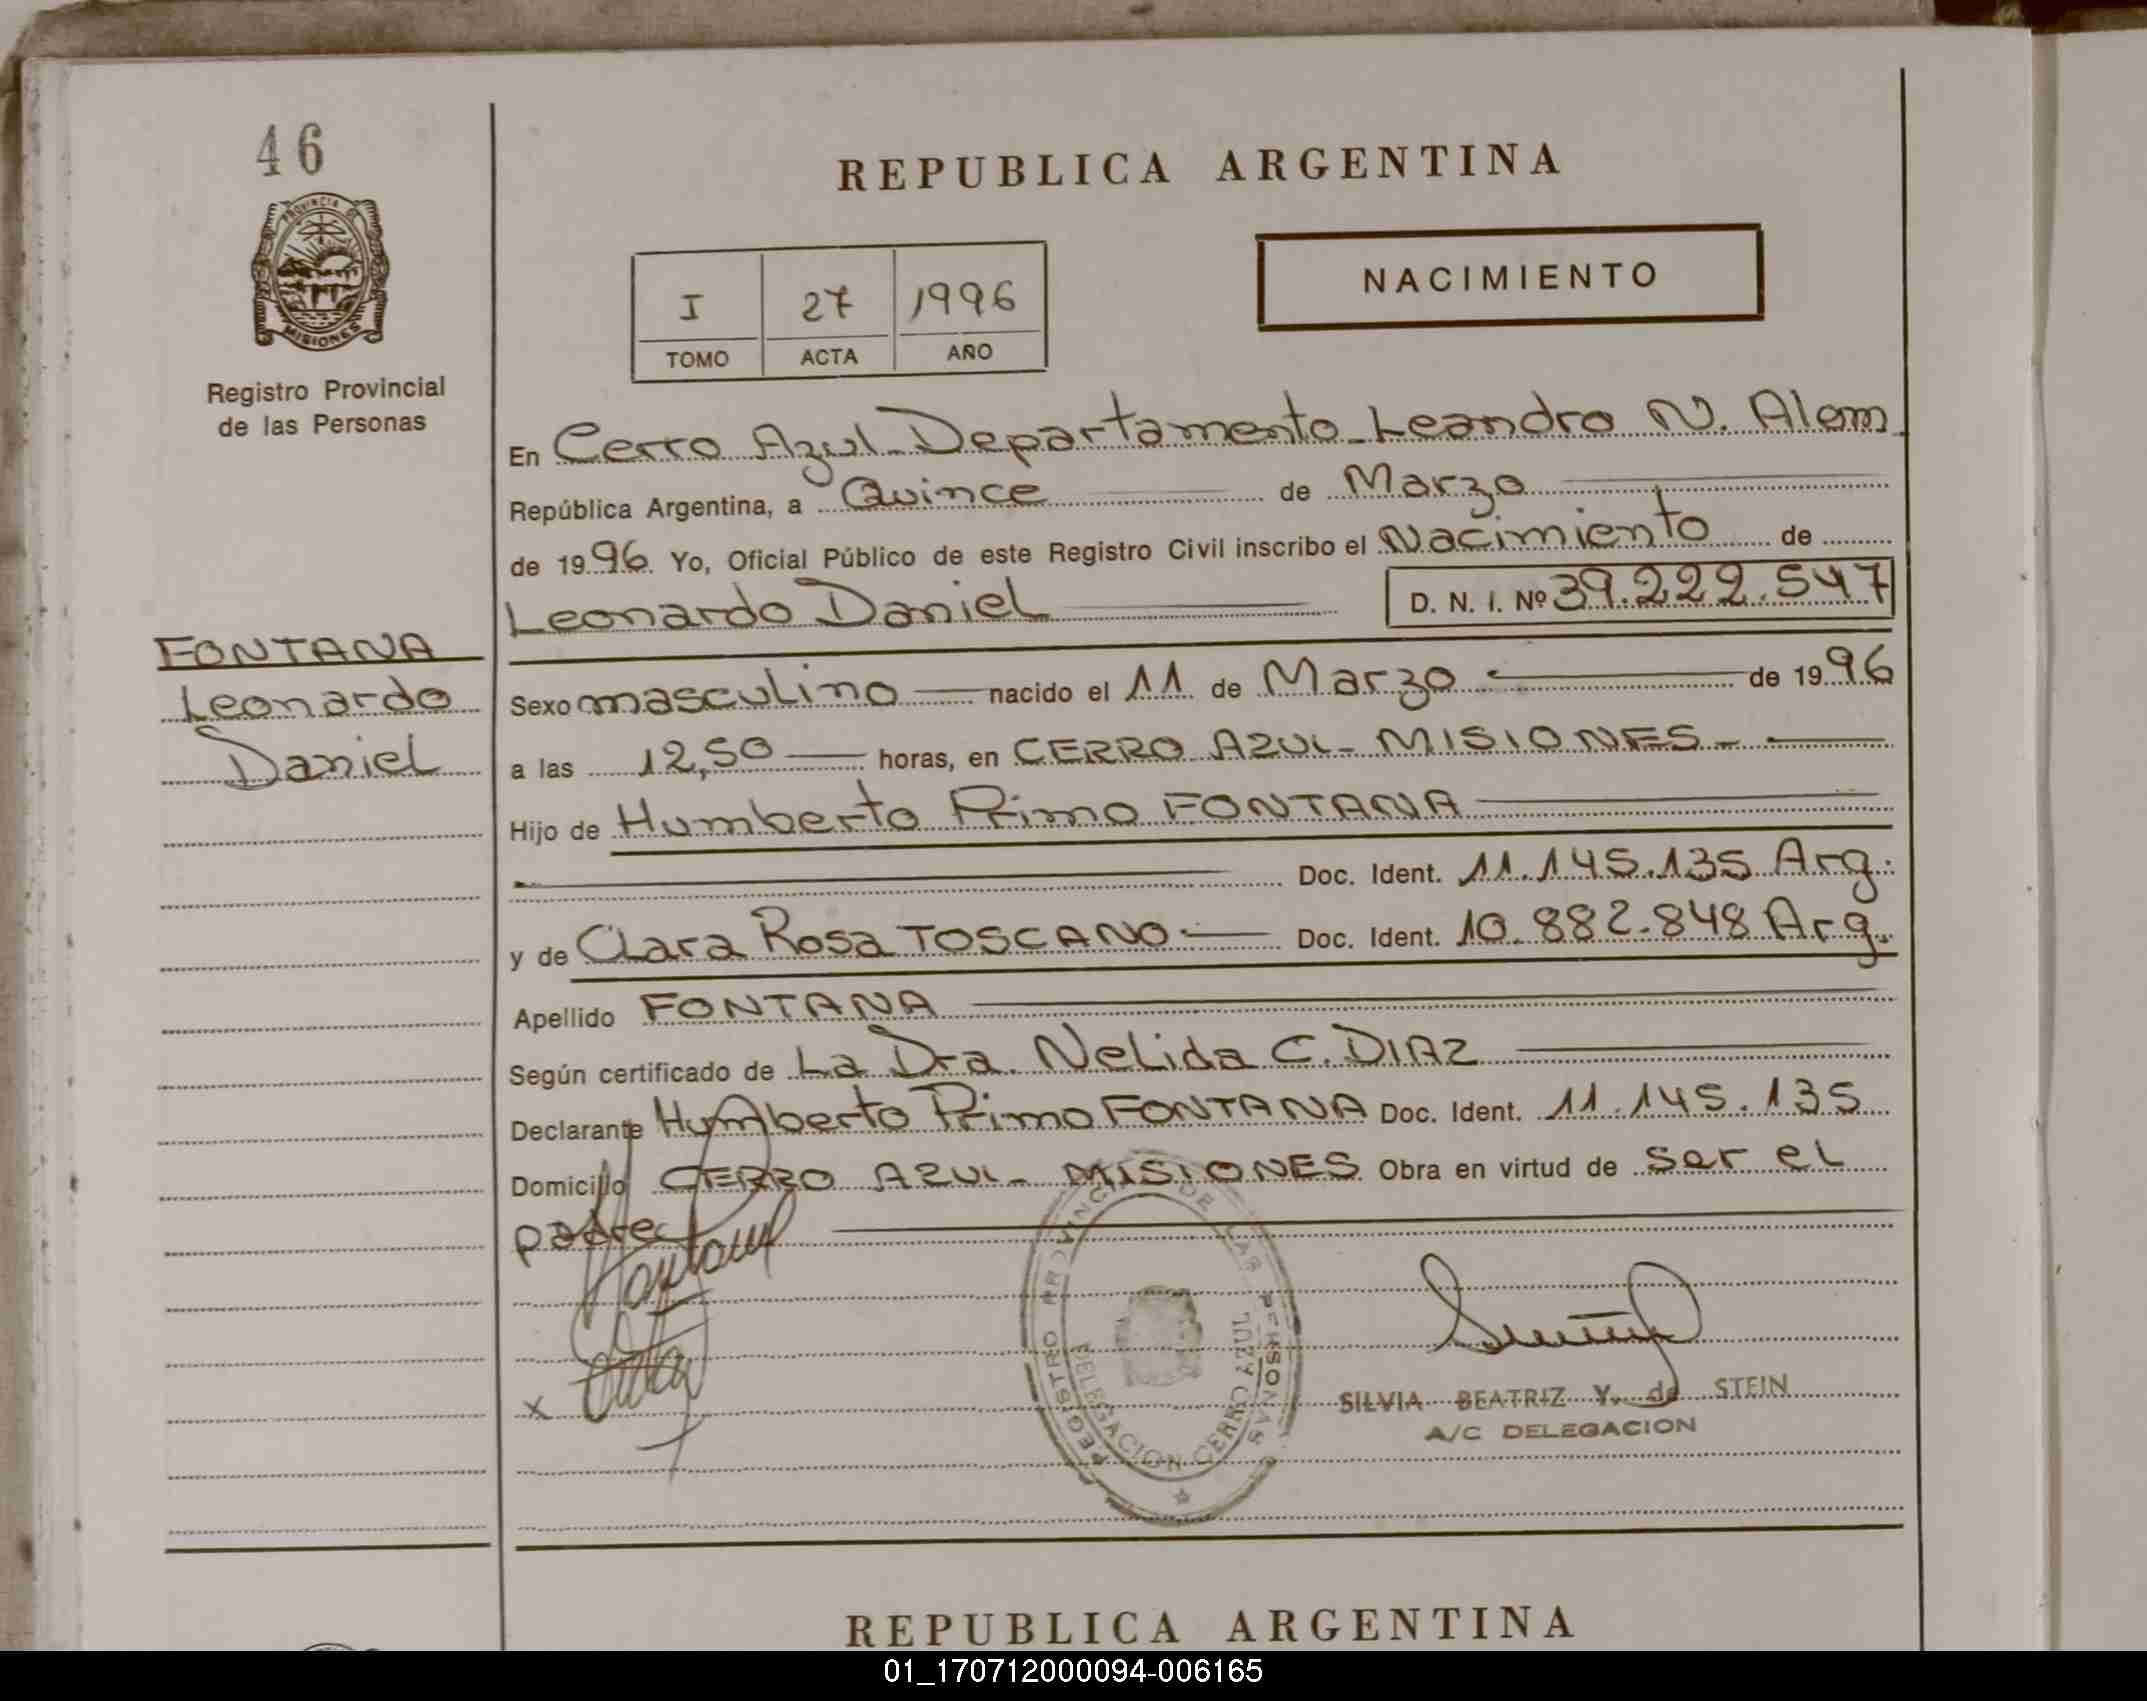 46
PROVINCIA DE
MISIONES
Registro Provincial
de las Personas
REPUBLICA ARGENTINA
I 27 1996
TOMO ACTA AÑO
NACIMIENTO
En Cerro Azul - Departamento - Leandro N. Alem
República Argentina, a Quince de Marzo
de 1996 Yo, Oficial Público de este Registro Civil inscribo el Nacimiento de
Leonardo Daniel D. N. I. Nº 39.222.547
FONTANA
Leonardo
Daniel
Sexo masculino nacido el 11 de Marzo de 1996
a las 12,50 horas, en CERRO AZUL - MISIONES -
Hijo de Humberto Primo FONTANA
Doc. Ident. 11.145.135 Arg.
y de Clara Rosa TOSCANO Doc. Ident. 10.882.848 Arg.
Apellido FONTANA
Según certificado de La Dra. Nelida C. DIAZ
Declarante Humberto Primo FONTANA Doc. Ident. 11.145.135
Domicilio CERRO AZUL - MISIONES Obra en virtud de ser el
padre
REGISTRO PROVINCIAL DE LAS PERSONAS
DELEGACION CERRO AZUL
x
SILVIA BEATRIZ Y. de STEIN
A/C DELEGACION
REPUBLICA ARGENTINA
01_170712000094-006165